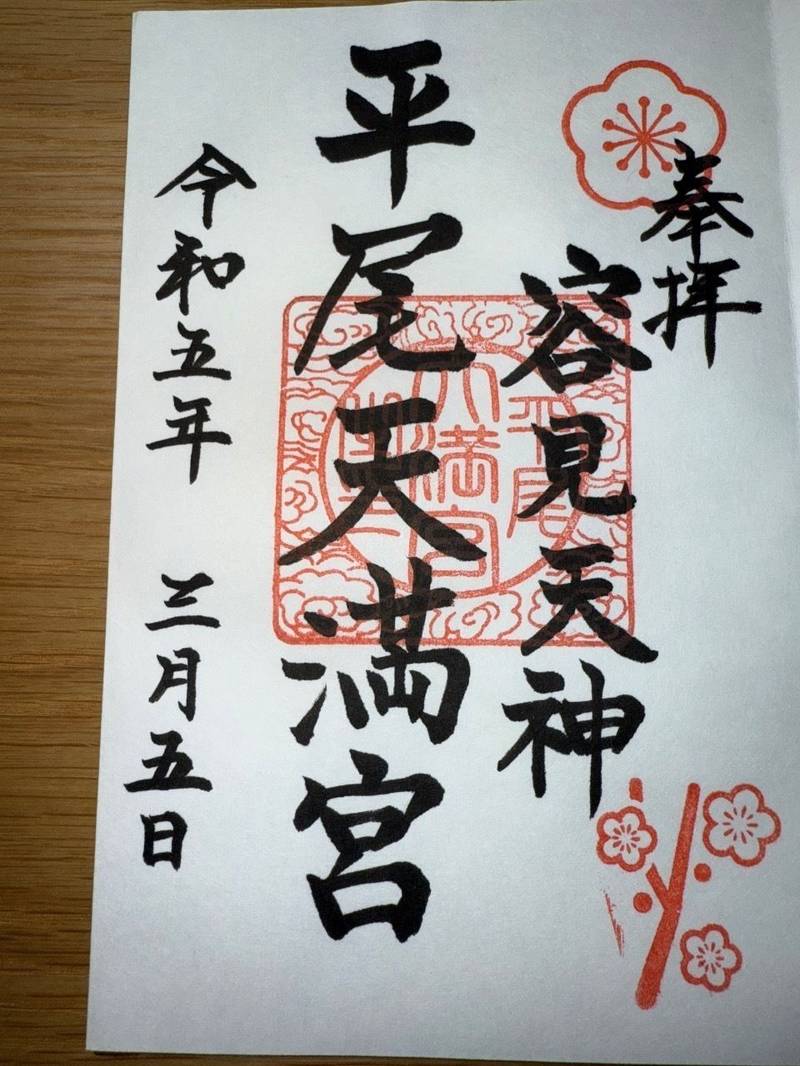 奉拝
容見天神
平尾天満宮
令和五年 三月五日
平尾
天満宮